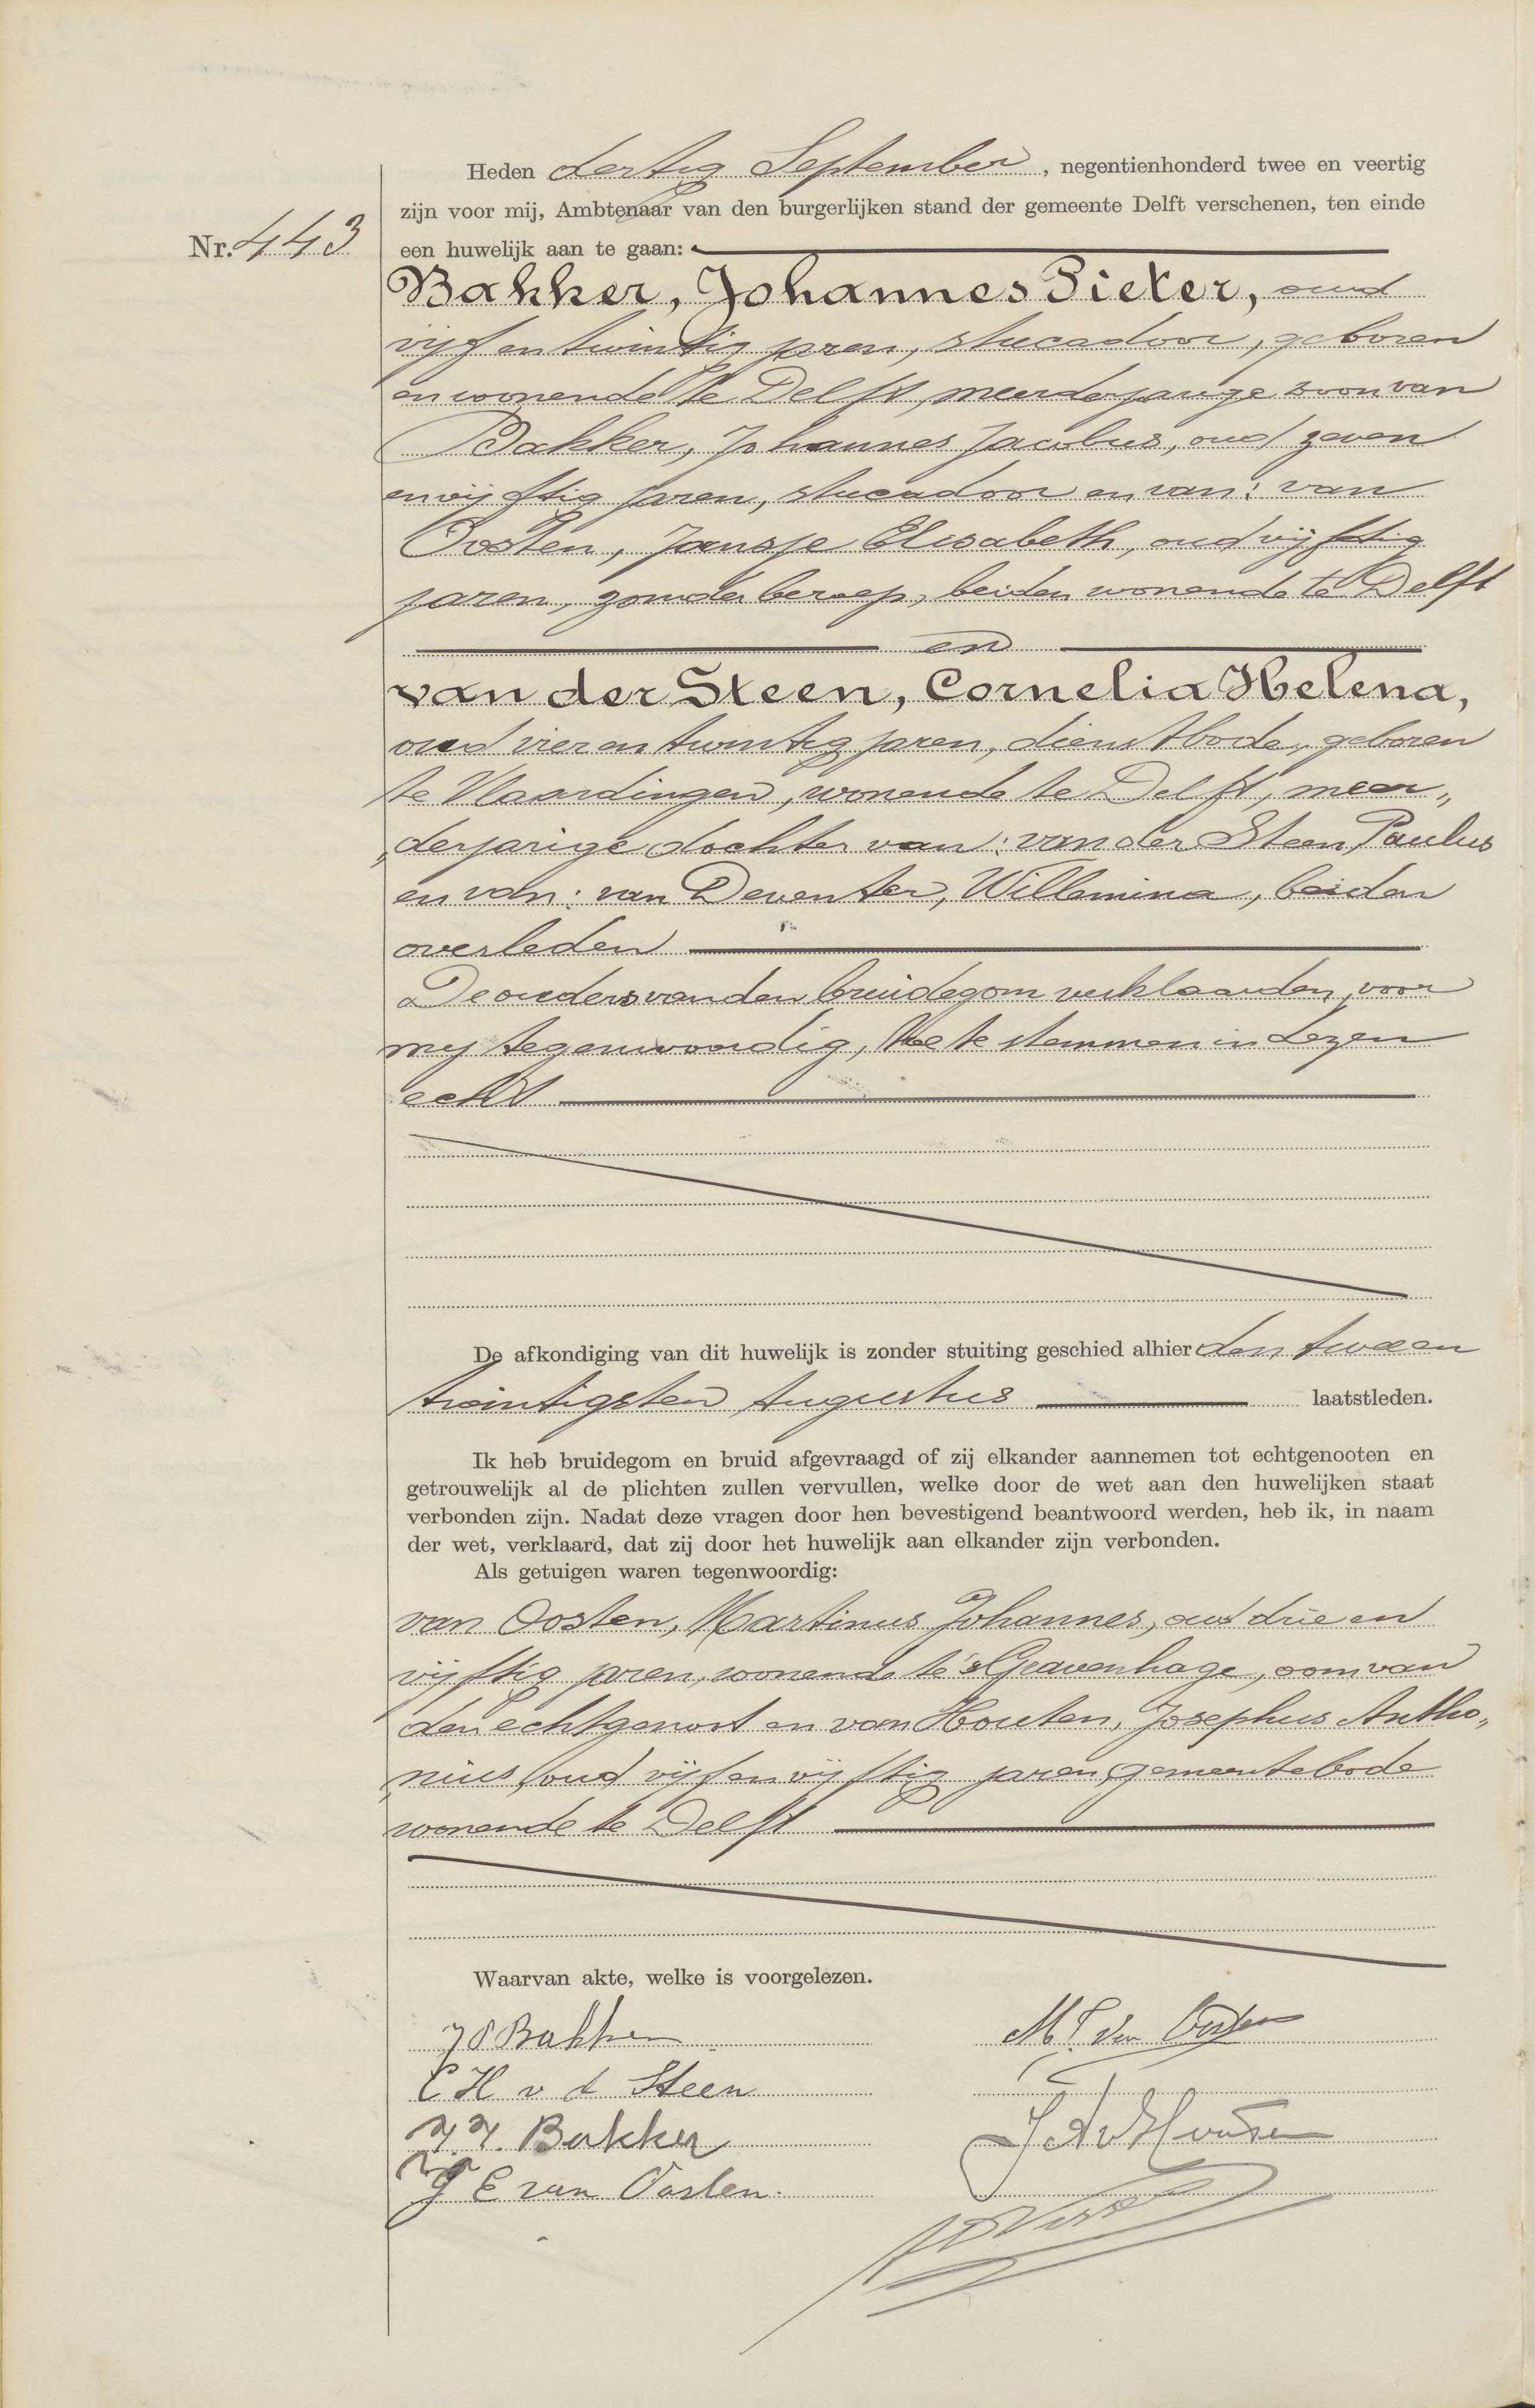 Heden dertig September, negentienhonderd twee en veertig
zijn voor mij, Ambtenaar van den burgerlijken stand der gemeente Delft verschenen, ten einde
Nr. 443
een huwelijk aan te gaan:
Bakker, Johannes Pieter, oud
vijf en twintig jaren, stucadoor, geboren
en wonende te Delft, meerderjarige zoon van
Bakker, Johannes Jacobus, oud zeven
en vijftig jaren, stucadoor en van: van
Oosten, Jansje Elisabeth, oud vijftig
jaren, zonder beroep, beiden wonende te Delft
en
van der Steen, Cornelia Helena,
oud vier en twintig jaren, dienstbode, geboren
te Vlaardingen, wonende te Delft, meer„
„derjarige dochter van: van der Steen, Paulus
en van: van Deventer, Willemina, beiden
overleden
De ouders van den bruidegom verklaarden, voor
mij tegenwoordig, toe te stemmen in dezen
echt
De afkondiging van dit huwelijk is zonder stuiting geschied alhier den twee en
twintigsten Augustus laatstleden.
Ik heb bruidegom en bruid afgevraagd of zij elkander aannemen tot echtgenooten en
getrouwelijk al de plichten zullen vervullen, welke door de wet aan den huwelijken staat
verbonden zijn. Nadat deze vragen door hen bevestigend beantwoord werden, heb ik, in naam
der wet, verklaard, dat zij door het huwelijk aan elkander zijn verbonden.
Als getuigen waren tegenwoordig:
van Oosten, Martinus Johannes, oud drie en
vijftig jaren, wonende te 's Gravenhage, oom van
den echtgenoot en van Houten, Josephus Antho„
„nius, oud vijf en vijftig jaren, gemeentebode
wonende te Delft
Waarvan akte, welke is voorgelezen.
J P Bakker
M J van Oosten
C H v d Steen
J. J. Bakker
J A v Houten
J E van Oosten.